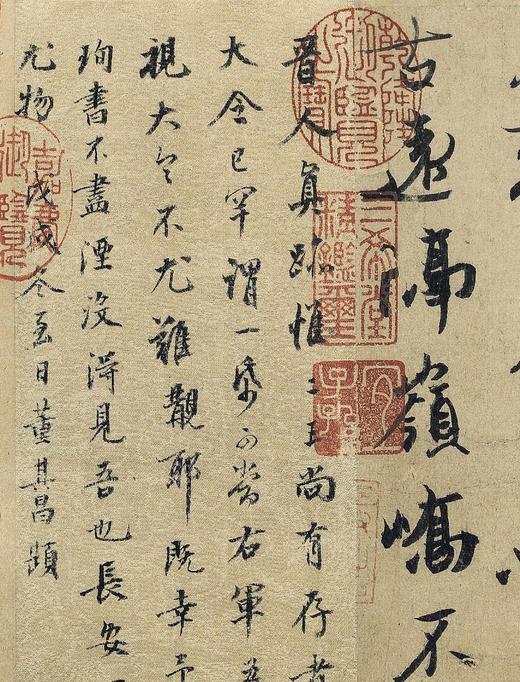 古遠隔嶺嶠不
晉人真跡惟二王尚有存者
大令已罕謂一紙可當右軍
視大令不尤難覯耶既幸予
珣書不盡湮沒得見吾也長安
尤物戊戌冬至日董其昌題
三希堂精鑑璽
宜子孫